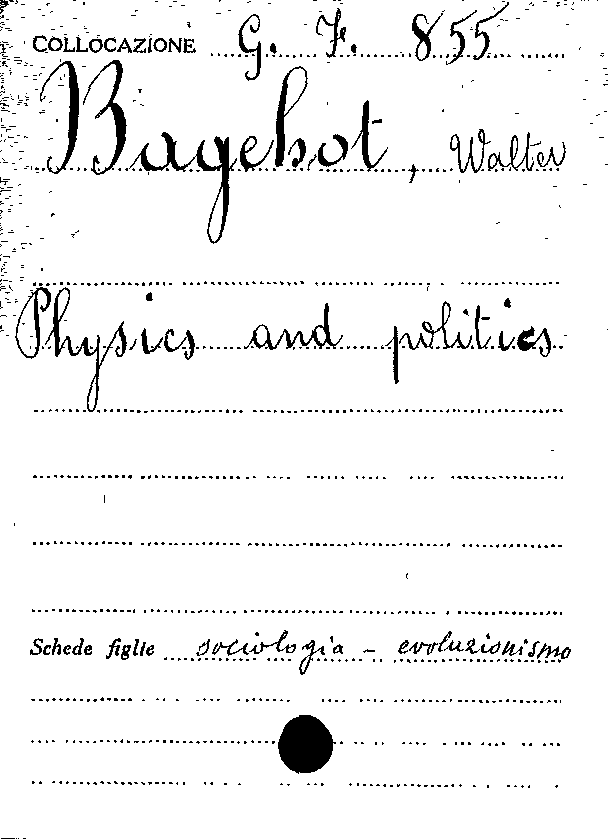 COLLOCAZIONE G. F. 855
Bagehot, Walter
Physics and politics
Schede figlie sociologia - evoluzionismo